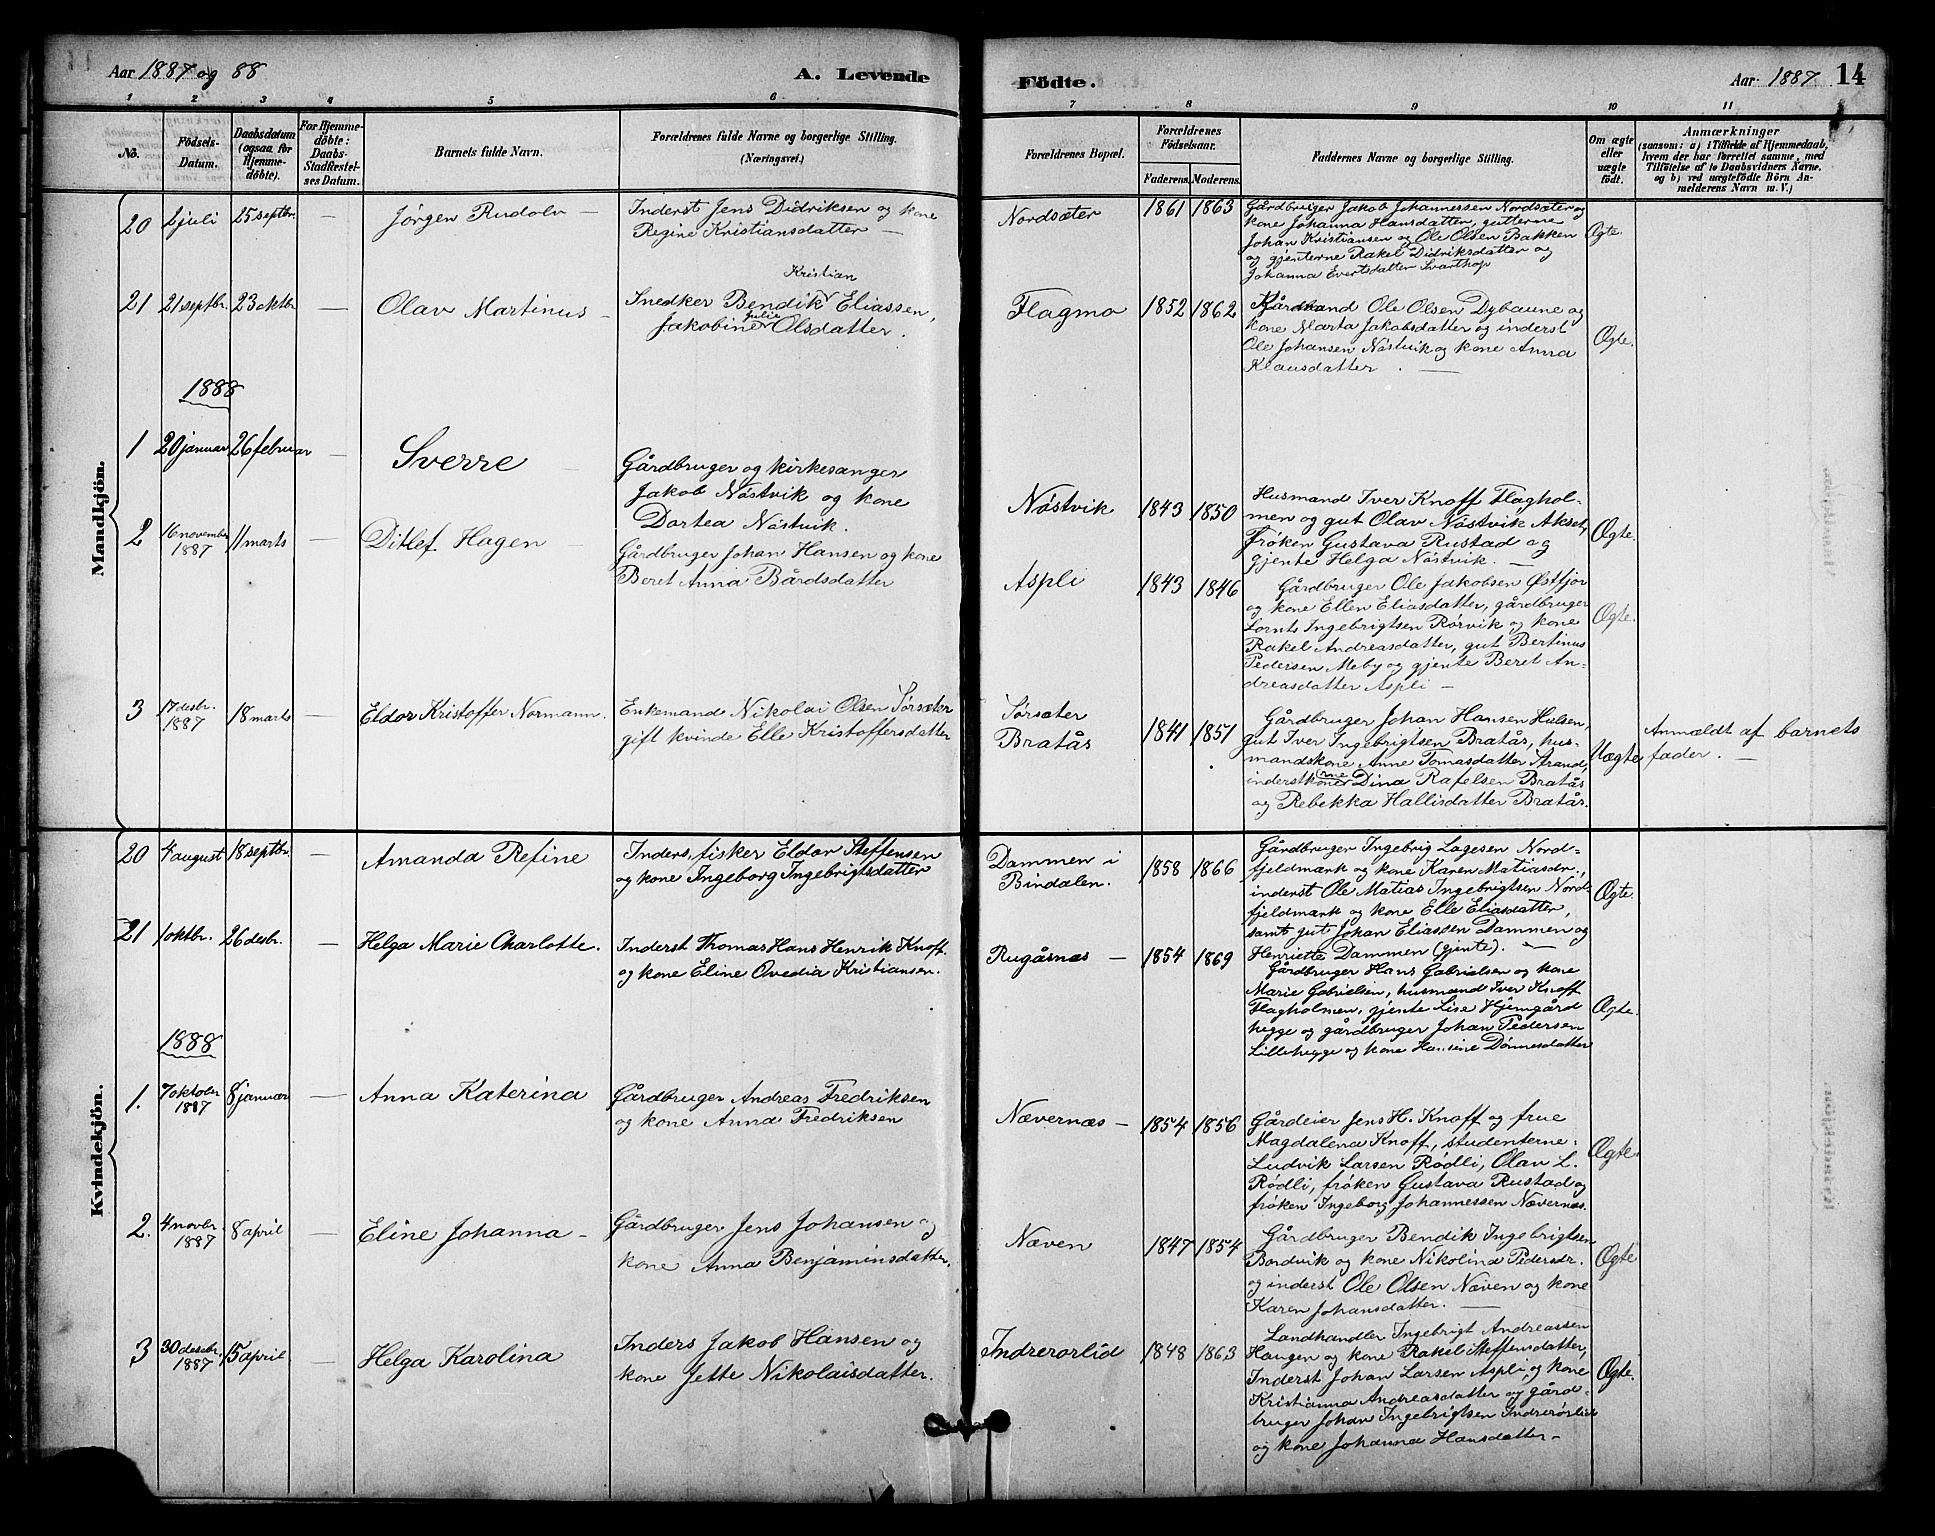 Aar 1887 og 88
A. Levende
Födte.
Aar 1887
14
1 2 3 4 5 6 7 8 9 10 11
No.
Födsels-
Datum.
Daabsdatum
(ogsaa for
Hjemme-
döbte).
For Hjemme-
döbte:
Daabs-
Stadfæstel-
ses Datum.
Barnets fulde Navn.
Forældrenes fulde Navne og borgerlige Stilling.
(Næringsvei.)
Forældrenes Bopæl.
Forældrenes
Födselsaar.
Faderens. Moderens.
Faddernes Navne og borgerlige Stilling.
Om ægte
eller
uægte
födt.
Anmærkninger
(saasom: a) i Tilfælde af Hjemmedaab,
hvem der har forrettet samme, med
Tilföielse af to Daabsvidners Navne,
og b) ved uægtefödte Börn An-
melderens Navn m. V.)
Mandkjön.
20 2 juli 25 septbr. — Jørgen Rudolv —
Inderst Jens Didriksen og kone
Regine Kristiansdatter —
Nordsæter 1861 1863
Gårdbruger Jakob Johannessen Nordsæter og
kone Johanna Hansdatter, gutterne
Johan Kristiansen og Ole Olsen Bakken
og gjenterne Rakel Didriksdatter og
Johanna Evertsdatter Svarthop
Ægte.
21 21 septbr. 23 oktbr — Olav Martinus —
Kristian
Snedker Bendik Eliassen,
Julie
Jakobine Olsdatter.
Flagmo 1852 1862
Gårdmand Ole Olsen Dybaune og
kone Marta Jakobsdatter og inderst
Ole Johansen Nøstvik og kone Anna
Klausdatter. —
Ægte.
1888
1 20 januar 26 februar — Sverre —
Gårdbruger og kirkesanger
Jakob Nøstvik og kone
Dortea Nøstvik.
Nøstvik 1843 1850
Husmand Iver Knoff Flaghol-
men og gut Olav Nøstvik Akset,
frøken Gustava Rustad og
gjente Helga Nøstvik. —
Ægte.
2 16 november 1887 11 marts — Ditlef Hagen —
Gårdbruger Johan Hansen og kone
Beret Anna Bårdsdatter
Aspli 1843 1846
Gårdbruger Ole Jakobsen Østfjor
og kone Ellen Eliasdatter, gårdbruger
Lornts Ingebrigtsen Rørvik og kone
Rakel Andreasdatter, gut Bertinus
Pedersen Meby og gjente Beret An-
dreasdatter Aspli —
Ægte.
3 17 desbr. 1887 18 marts — Eldor Kristoffer Normann.
Enkemand Nikolai Olsen Sørsæter
gift kvinde Elle Kristoffersdatter
Sørsæter
Bratås 1841 1851
Gårdbruger Johan Hansen Hulsen,
gut Iver Ingebrigtsen Bratås, hus-
mandskone Anne Tomasdatter Strand,
inderstkonerne Dina Rafelsen Bratås
og Rebekka Hallisdatter Bratås.
Uægte
Anmældt af barnets
fader. —
Kvindekjön.
20 4 august 18 septbr. — Amanda Refine
Inders, fisker Eldor Steffensen
og kone Ingeborg Ingebrigtsdatter
Dammen i
Bindalen. 1858 1866
Gårdbruger Ingebrig Lagesen Nord-
fjeldmark og kone Karen Matiasdr.,
inderst Ole Matias Ingebrigtsen Nord-
fjeldmark og kone Elle Eliasdatter,
samt gut Johan Eliassen Dammen og
Henriette Dammen (gjente). —
Ægte.
21 1 oktbr. 26 desbr. — Helga Marie Charlotte.
Inderst Thomas Hans Henrik Knoff
og kone Eline Ovedia Kristiansen.
Rugåsnæs — 1854 1869
Gårdbruger Hans Gabrielsen og kone
Marie Gabrielsen, husmand Iver Knoff
Flagholmen, gjente Lise Hjemgård
hegge og gårdbruger Johan Pedersen
Lillehegge og kone Hansine Dønnesdatter
Ægte.
1888
1. 7 oktober 1887 8 januar — Anna Katerina
Gårdbruger Andreas Fredriksen
og kone Anna Fredriksen
Nævernæs — 1854 1856
Gårdeier Jens H. Knoff og frue
Magdalena Knoff, studenterne
Ludvik Larsen Rødli, Olav L.
Rødli, frøken Gustava Rustad og
frøken Ingeborg Johannessen Nævernæs.
Ægte.
2. 4 novbr 1887 8 april — Eline Johanna —
Gårdbruger Jens Johansen og
kone Anna Benjaminsdatter.
Næven 1847 1854
Gårdbruger Bendik Ingebrigtsen
Bordvik og kone Nikolina Pedersdr.
og inderst Ole Olsen Næven og kone
Karen Johansdatter. —
Ægte
3 30 desbr. 1887 15 april — Helga Karolina
Inders Jakob Hansen og
kone Jette Nikolaisdatter.
Indrerorlid 1848 1863
Landhandler Ingebrigt Andreassen
Haugen og kone Rakel Steffensdatter,
Inderst Johan Larsen Aspli, og kone
Kristianna Andreasdatter og gård-
bruger Johan Ingebrigtsen Indrerørlid
og kone Johanna Hansdatter —
Ægte.